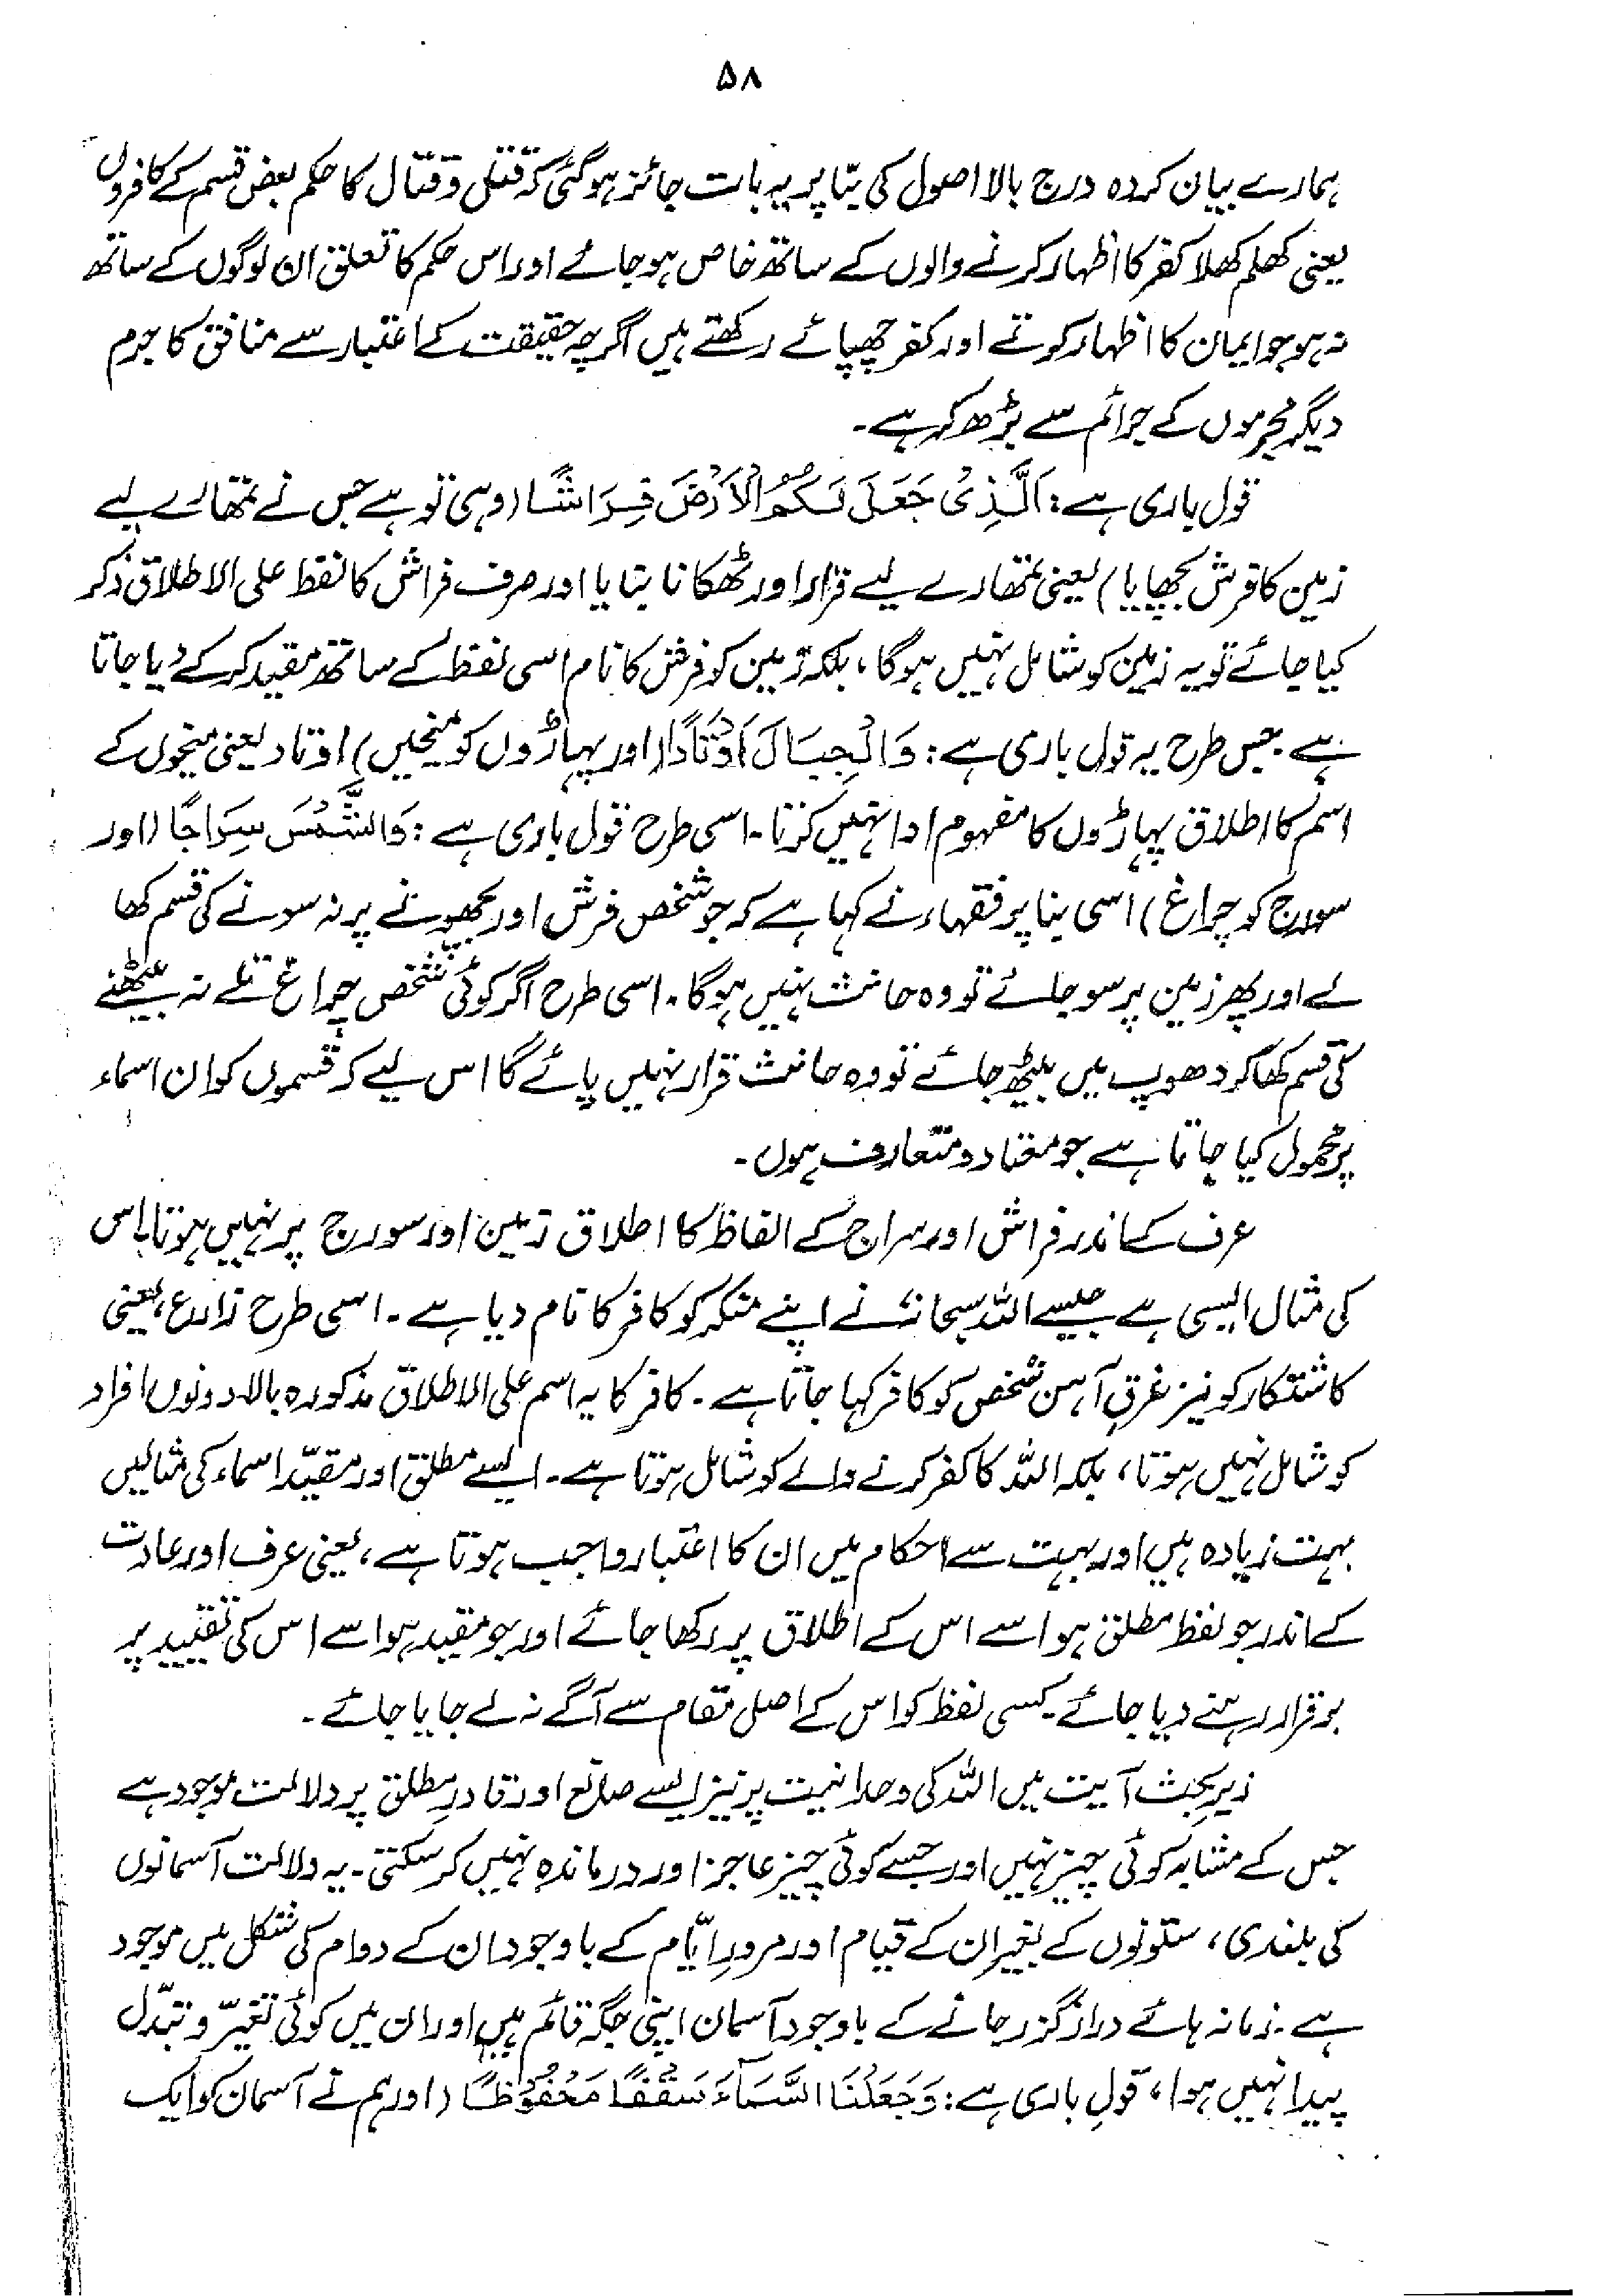 ۵۸
ہمارے بیان کردہ درج بالا اصول کی بنا پر یہ بات جائز ہوگئی کہ قتل و قتال کا حکم بعض قسم کے کافروں
یعنی کھلم کھلا کفر کا اظہار کرنے والوں کے ساتھ خاص ہوجائے اور اس حکم کا تعلق ان لوگوں کے ساتھ
نہ ہو جو ایمان کا اظہار کرتے اور کفر چھپائے رکھتے ہیں اگرچہ حقیقت کے اعتبار سے منافق کا جرم
دیگر مجرموں کے جرائم سے بڑھ کر ہے۔
قول باری ہے: اَلَّذِیْ جَعَلَ لَکُمُ الْاَرْضَ فِرَاشًا (وہی تو ہے جس نے تمھارے لیے
زمین کا فرش بچھایا) یعنی تمھارے لیے قرار اور ٹھکانا بنایا اور صرف فراش کا لفظ علی الاطلاق ذکر
کیا جائے تو یہ زمین کو شامل نہیں ہوگا، بلکہ زمین کو فرش کا نام اسی لفظ کے ساتھ مقید کرکے دیا جاتا
ہے۔ جس طرح یہ قول باری ہے: وَالْجِبَالَ اَوْتَادًا (اور پہاڑوں کو میخیں) اوتاد یعنی میخوں کے
اسم کا اطلاق پہاڑوں کا مفہوم ادا نہیں کرتا۔ اسی طرح قول باری ہے: وَالشَّمْسَ سِرَاجًا (اور
سورج کو چراغ) اسی بنا پر فقہاء نے کہا ہے کہ جو شخص فرش اور بچھونے پر نہ سونے کی قسم کھا
لے اور پھر زمین پر سو جائے تو وہ حانث نہیں ہوگا۔ اسی طرح اگر کوئی شخص چراغ تلے نہ بیٹھنے
کی قسم کھا کر دھوپ میں بیٹھ جائے تو وہ حانث قرار نہیں پائے گا اس لیے کہ قسموں کو ان اسماء
پر محمول کیا جاتا ہے جو معتاد و متعارف ہوں۔
عرف کے اندر فراش اور سراج کے الفاظ کا اطلاق زمین اور سورج پر نہیں ہوتا۔ اس
کی مثال ایسی ہے جیسے اللہ سبحانہٗ نے اپنے منکر کو کافر کا نام دیا ہے۔ اسی طرح زارع، یعنی
کاشتکار کو نیز غرقِ آہن شخص کو کافر کہا جاتا ہے۔ کافر کا یہ اسم علی الاطلاق مذکورہ بالا دونوں افراد
کو شامل نہیں ہوتا، بلکہ اللہ کا کفر کرنے والے کو شامل ہوتا ہے۔ ایسے مطلق اور مقیّد اسماء کی مثالیں
بہت زیادہ ہیں اور بہت سے احکام میں ان کا اعتبار واجب ہوتا ہے، یعنی عرف اور عادت
کے اندر جو لفظ مطلق ہو اسے اس کے اطلاق پر رکھا جائے اور جو مقید ہو اسے اس کی تقیید پر
برقرار رہنے دیا جائے۔ کسی لفظ کو اس کے اصل مقام سے آگے نہ لے جایا جائے۔
زیرِ بحث آیت میں اللہ کی وحدانیت پر نیز ایسے صانع اور قادرِ مطلق پر دلالت موجود ہے
جس کے مشابہ کوئی چیز نہیں اور جسے کوئی چیز عاجز اور درماندہ نہیں کر سکتی۔ یہ دلالت آسمانوں
کی بلندی، ستونوں کے بغیر ان کے قیام اور مرورِ ایّام کے باوجود ان کے دوام کی شکل میں موجود
ہے۔ زمانہ ہائے دراز گزر جانے کے باوجود آسمان اپنی جگہ قائم ہیں اور ان میں کوئی تغیّر و تبدّل
پیدا نہیں ہوا، قولِ باری ہے: وَجَعَلْنَا السَّمَآءَ سَقْفًا مَحْفُوْظًا (اور ہم نے آسمان کو ایک